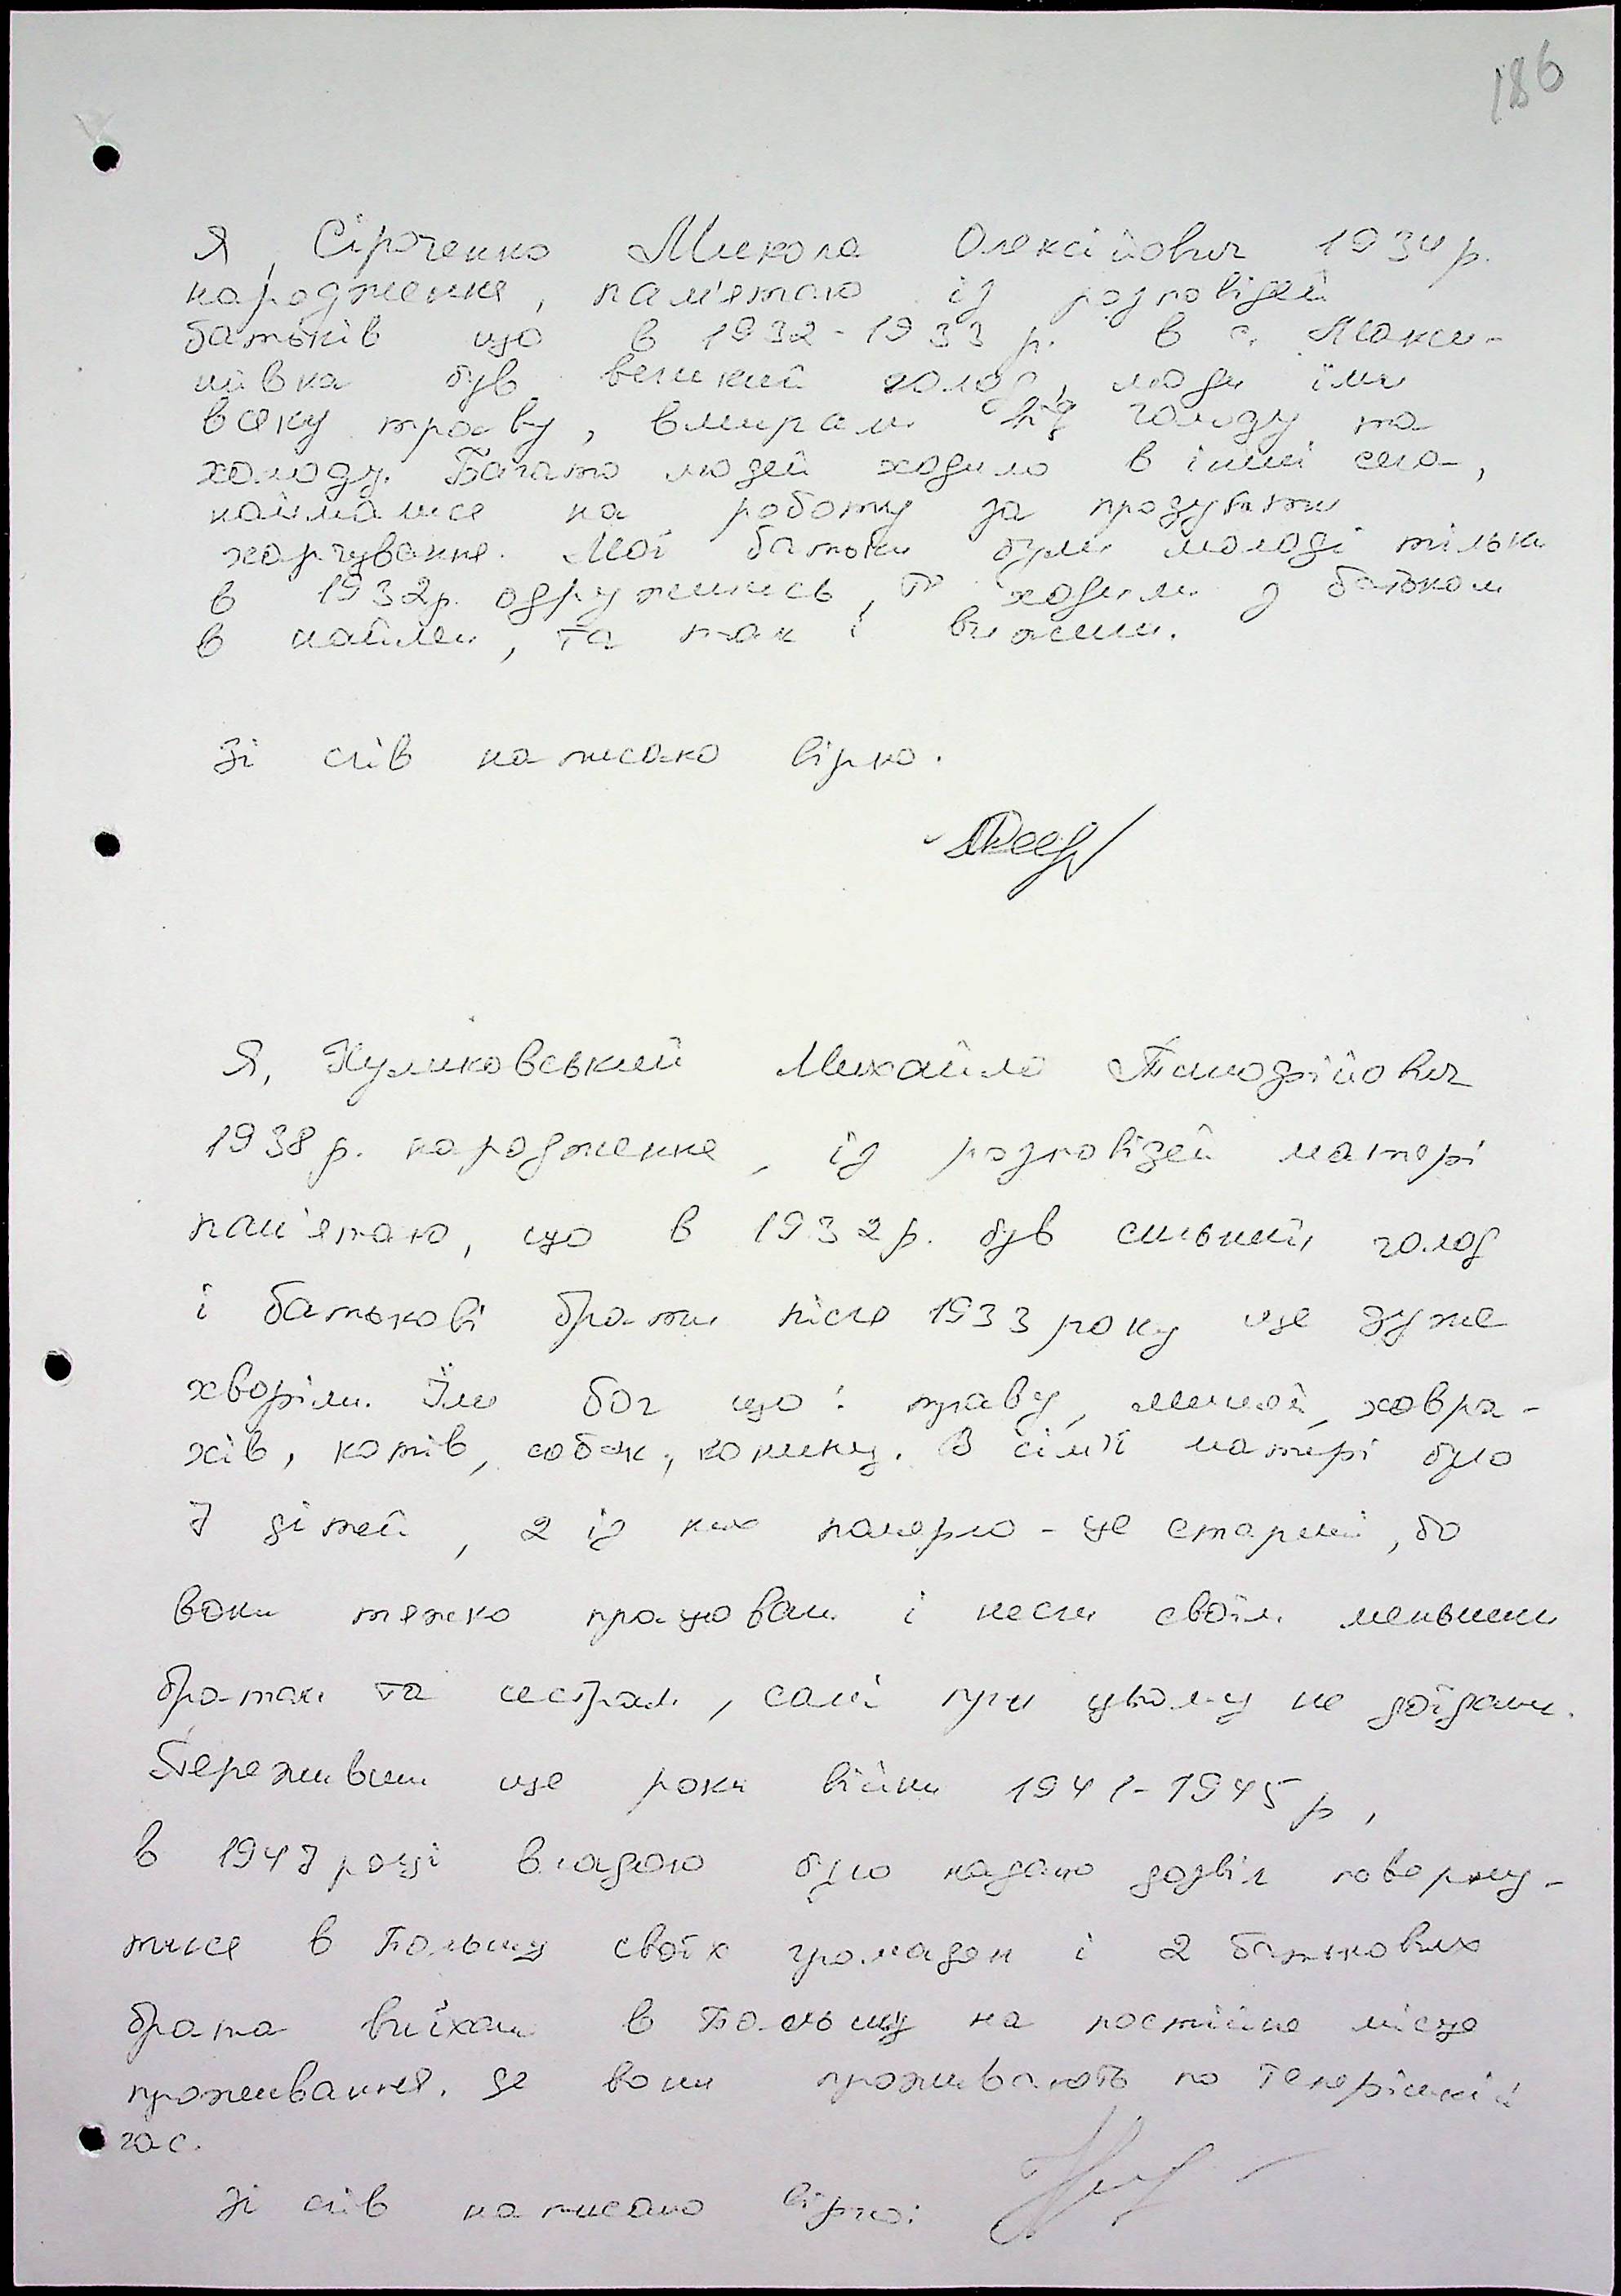 186
Я, Сіроченко Микола Олексійович 1934 р.
народження, пам'ятаю із розповідей
батьків що в 1932-1933 р. в с. Макси-
мівка був великий голод, люди їли
всяку траву, вмирали від голоду та
холоду. Багато людей ходило в інші села,
наймалися на роботу за продукти
харчування. Мої батьки були молоді тільки
в 1932р. одружились, ходили з батьком
в найми, та так і вижили.
Зі слів написано вірно.
Я, Куликовський Михайло
1938 р. народження, із розповідей матері
пам'ятаю, що в 1932 р. був сильний голод
і батькові брати після 1933 року ще дуже
хворіли. Їли бог що: траву, мишей, ховра-
хів, котів, собак, конину. В сім'ї матері було
7 дітей, 2 із них померло - це старші, бо
вони тяжко працювали і несли своїм меньшим
братам та сестрам, самі при цьому не доїдали.
Переживши ще роки війни 1941-1945 р,
в 1947 році владою було надано дозвіл поверну-
тися в Польщу своїх громадян і 2 батькових
брата виїхали в Польщу на постійне місце
проживання. де вони проживають по теперішній
час.
Зі слів написано вірно: